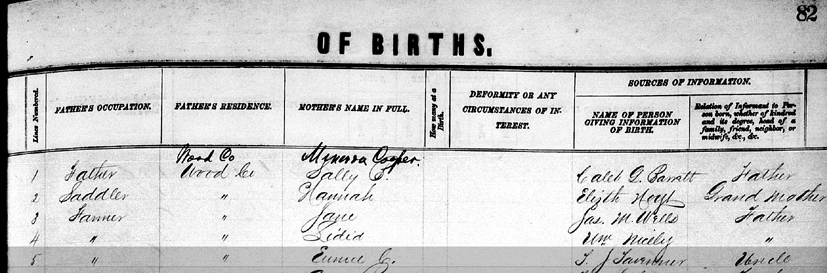 82
OF BIRTHS.
Lines Numbered. FATHER'S OCCUPATION. FATHER'S RESIDENCE. MOTHER'S NAME IN FULL. How many at a Birth. DEFORMITY OR ANY CIRCUMSTANCES OF INTEREST. SOURCES OF INFORMATION.
NAME OF PERSON GIVING INFORMATION OF BIRTH. Relation of Informant to Person born, whether of kindred and its degree, head of a family, friend, neighbor, or midwife, &c., &c.
Wood Co Minerva Cooper.
1 Father Wood Co Sally Caleb G. Barratt Father
2 Saddler " Hannah Elizth Hoyt Grand Mother
3 Farmer " Jane Jas. M. Wells Father
4 " " Lidid Wm Nicely "
5 " " J Uncle